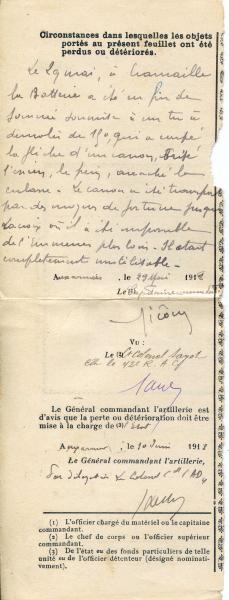 Circonstances dans lesquelles les objets
portés au présent feuillet ont été
perdus ou détériorés.
Le 29 mai, à Cramaille
la Batterie a été en fin de
journée soumise à un tir à
démolir de 150, qui a coupé
la flèche d'un canon, brisé
l'essieu, le frein, arraché la
culasse. Le canon a été transporté
par des moyens de fortune jusque
où il a été impossible
de l'emmener plus loin. Il était
complètement inutilisable
Aux armées, le 29 Mai 1918
Le
Vu :
Le (2) Colonel
Ct le 42e R.A.C.
Le Général commandant l'artillerie est
d'avis que la perte ou détérioration doit être
mise à la charge de (3) l'Etat.
Aux armées, le 10 Juin 1918
Le Général commandant l'artillerie,
Par délégation Le Colonel Ct l'AD
(1) L'officier chargé du matériel ou le capitaine
commandant.
(2) Le chef de corps ou l'officier supérieur
commandant.
(3) De l'état ou des fonds particuliers de telle
unité ou de l'officier détenteur (désigné nominati-
vement).